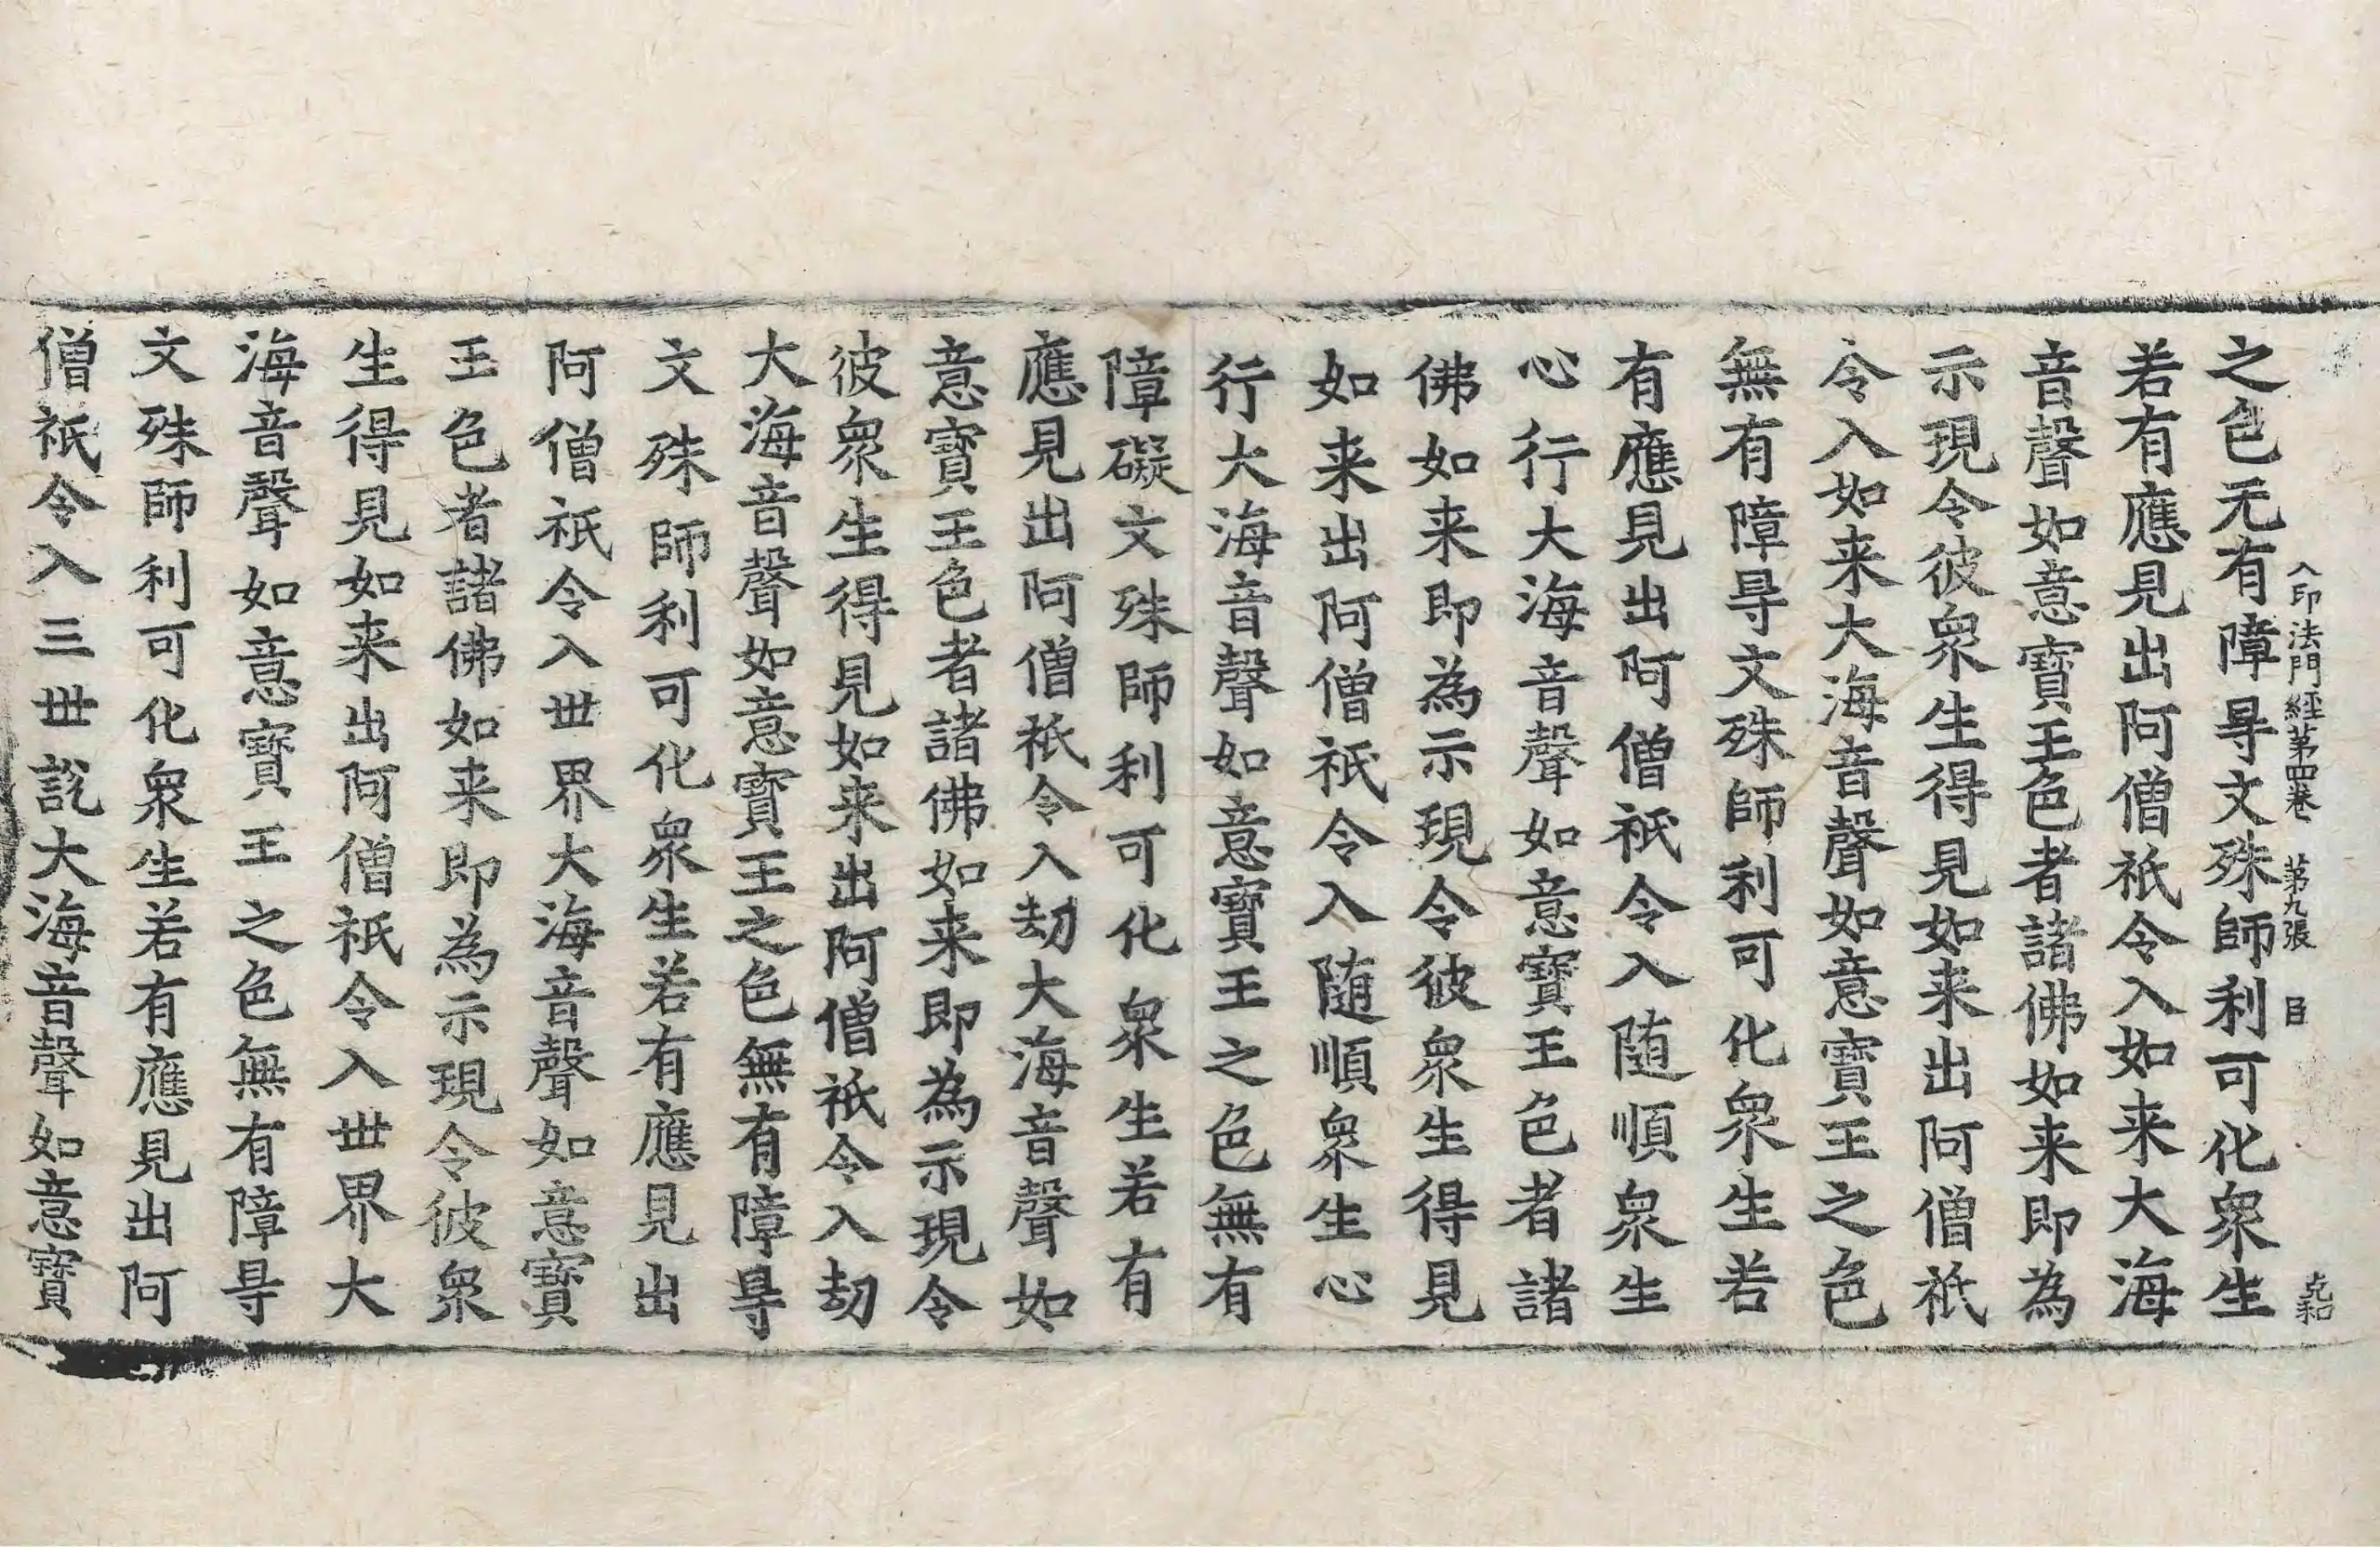 入印法門經第四卷 第九張 臣
克和
之色无有障㝵文殊師利可化衆生
若有應見出阿僧祇令入如来大海
音聲如意寶王色者諸佛如来即為
示現令彼衆生得見如来出阿僧祇
令入如来大海音聲如意寶王之色
無有障㝵文殊師利可化衆生若
有應見出阿僧祇令入随順衆生
心行大海音聲如意寶王色者諸
佛如来即為示現令彼衆生得見
如来出阿僧祇令入随順衆生心
行大海音聲如意寶王之色無有
障礙文殊師利可化衆生若有
應見出阿僧祇令入劫大海音聲如
意寶王色者諸佛如来即為示現令
彼衆生得見如来出阿僧祇令入劫
大海音聲如意寶王之色無有障㝵
文殊師利可化衆生若有應見出
阿僧祇令入世界大海音聲如意寶
王色者諸佛如来即為示現令彼衆
生得見如来出阿僧祇令入世界大
海音聲如意寶王之色無有障㝵
文殊師利可化衆生若有應見出阿
僧祇令入三世說大海音聲如意寶